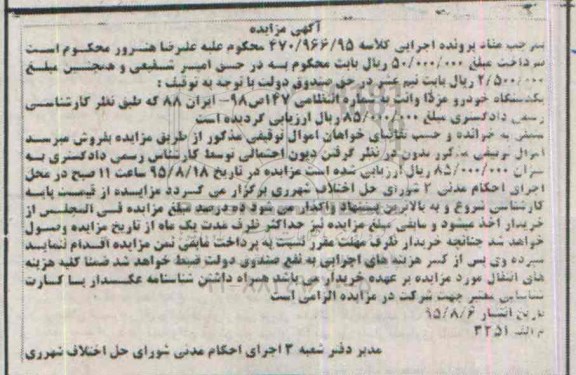 آگهی مزایده
بموجب مفاد پرونده اجرایی کلاسه ۴۷۰/۹۶۶/۹۵ محکوم علیه علیرضا هنرور محکوم است
بپرداخت مبلغ ۵۰/۰۰۰/۰۰۰ ریال بابت محکوم به در حق امیر شفیعی و همچنین مبلغ
۲/۵۰۰/۰۰۰ ریال بابت نیم عشر در حق صندوق دولت با توجه به توقیف :
یکدستگاه خودرو مزدا وانت به شماره انتظامی ۱۴۷ص۹۸- ایران ۸۸ که طبق نظر کارشناسی
رسمی دادگستری مبلغ ۸۵/۰۰۰/۰۰۰ ریال ارزیابی گردیده است
مبتنی به خوانده و حسب تقاضای خواهان اموال توقیفی مذکور از طریق مزایده بفروش میرسد
اموال توقیفی مذکور بدون در نظر گرفتن دیون احتمالی توسط کارشناس رسمی دادگستری به
میزان ۸۵/۰۰۰/۰۰۰ ریال ارزیابی شده است مزایده در تاریخ ۹۵/۸/۱۸ ساعت ۱۱ صبح در محل
اجرای احکام مدنی ۲ شورای حل اختلاف شهرری برگزار می گردد مزایده از قیمت پایه
کارشناسی شروع و به بالاترین پیشنهاد واگذار می شود ده درصد مبلغ مزایده فی المجلس از
خریدار اخذ میشود و مابقی مبلغ مزایده نیز حداکثر ظرف مدت یک ماه از تاریخ مزایده وصول
خواهد شد چنانچه خریدار ظرف مهلت مقرر نسبت به پرداخت مابقی ثمن مزایده اقدام ننماید
سپرده وی پس از کسر هزینه های اجرایی به نفع صندوق دولت ضبط خواهد شد ضمنا کلیه هزینه
های انتقال مورد مزایده بر عهده خریدار می باشد همراه داشتن شناسنامه عکسدار یا کارت
شناسایی معتبر جهت شرکت در مزایده الزامی است
تاریخ انتشار ۹۵/۸/۶
م الف ۳۲۵۱
مدیر دفتر شعبه ۳ اجرای احکام مدنی شورای حل اختلاف شهرری